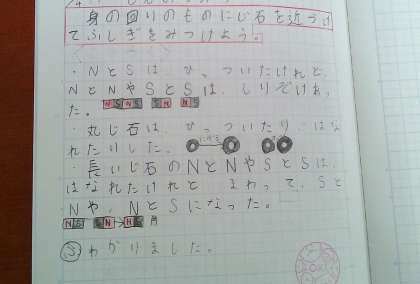 身の回りのものにじ石を近づけ
てふしぎをみつけよう。
・NとSは、ひっついたけれど、
NとNやSとSは、しりぞけあっ
た。
NS NS SN NS
・丸じ石は、ひっついたり、はな
れたりした。
・長いじ石のNとNやSとSは、
はなれたけれど、まわって、Sと
Nや、NとSになった。
NS SN→NS
わかりました。